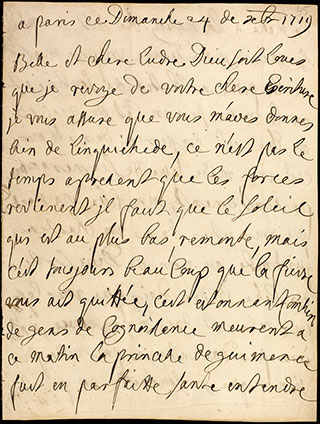 a paris ce Dimanche 24 de xbr 1719
Belle et chere Ludre Dieu soit loues
que je revoye de vottre chere Ecriture
je vous assure que vous m'aves donnes
bien de linquiettude, ce n'est pas le
temps apresent que les forces
revienent jl faut que le soleil
qui est au plus bas remonte, mais
c'est toujours beaucoup que la fievre
vous ait quittée, c'est etonnant combien
de gens de Cognoissence meurent
ce matin la princesse de guimenee
fust en parfaitte sante entendre